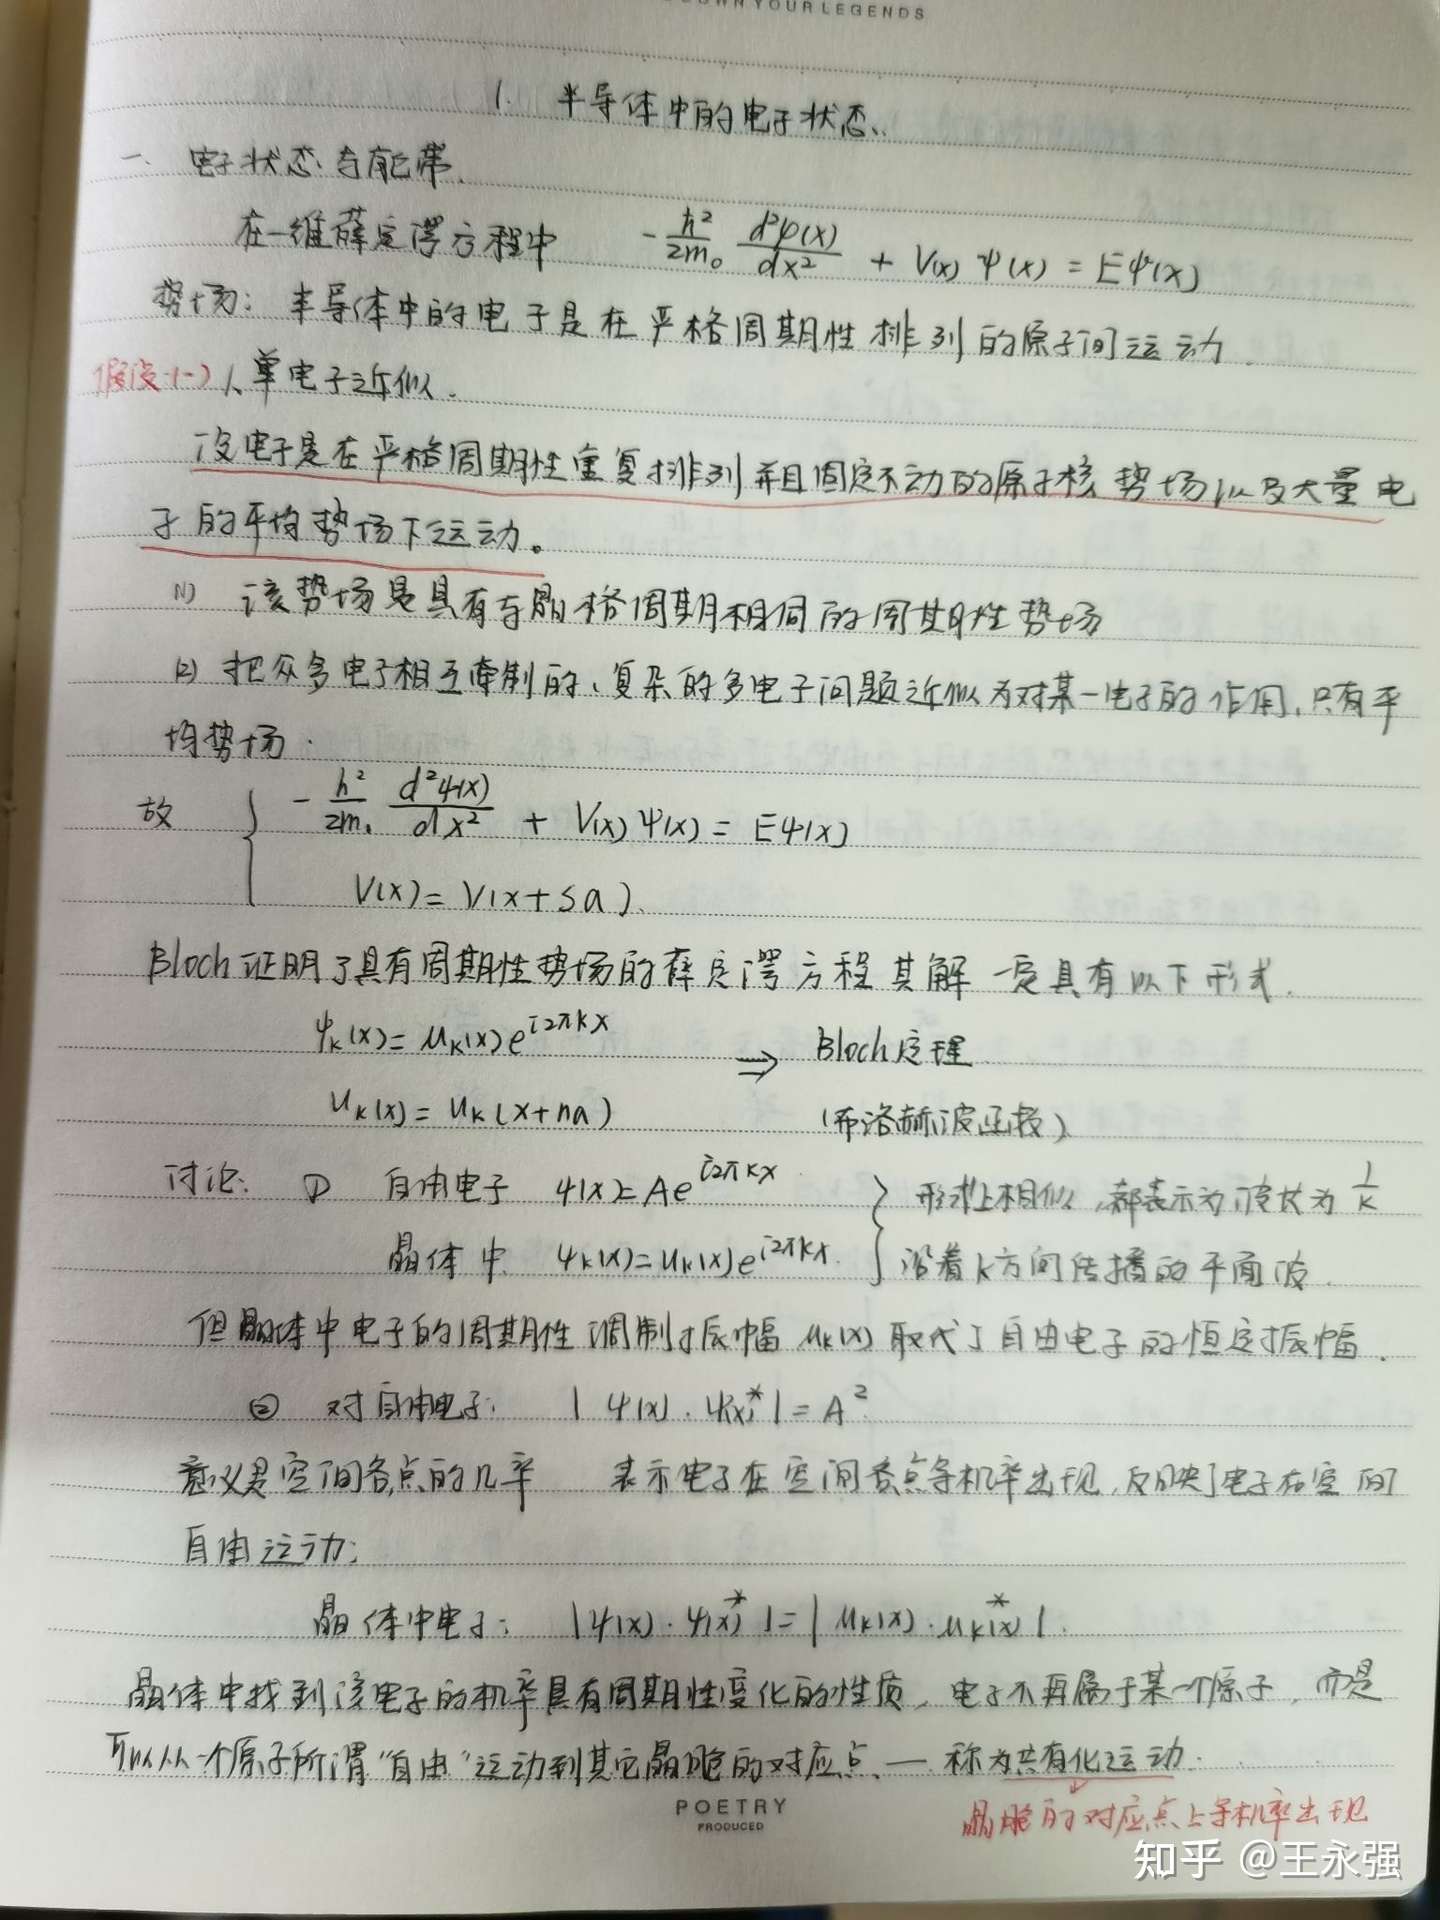 YOUR LEGENDS
1. 半导体中的电子状态.
一. 电子状态与能带.
在一维薛定谔方程中 -ħ²/2m₀ d²φ(x)/dx² + V(x) ψ(x) = Eψ(x)
势场: 半导体中的电子是在严格周期性排列的原子间运动.
假设(一) 1、单电子近似.
设电子是在严格周期性重复排列并且固定不动的原子核势场以及大量电
子的平均势场下运动。
(1) 该势场是具有与晶格周期相同的周期性势场
(2) 把众多电子相互牵制的、复杂的多电子问题近似为对某一电子的作用,只有平
均势场.
故 { -ħ²/2m₀ d²ψ(x)/dx² + V(x) ψ(x) = Eψ(x)
V(x) = V(x+sa).
Bloch证明了具有周期性势场的薛定谔方程其解一定具有以下形式.
ψk(x) = uk(x)e^{i2πkx} ⇒ Bloch定理
uk(x) = uk(x+na) (布洛赫波函数)
讨论: ① 自由电子 ψ(x) = Ae^{i2πkx} } 形式上相似,都表示为波长为 1/k
晶体中 ψk(x) = uk(x)e^{i2πkx} 沿着k方向传播的平面波.
但晶体中电子的周期性调制振幅uk(x)取代了自由电子的恒定振幅.
② 对自由电子: |ψ(x)·ψ(x)*| = A²
意义是空间各点的几率 表示电子在空间各点等机率出现,反映了电子在空间
自由运动;
晶体中电子: |ψ(x)·ψ(x)*| = |uk(x)·uk(x)*|.
晶体中找到该电子的机率具有周期性变化的性质, 电子不再属于某一个原子, 而是
可以从一个原子所谓"自由"运动到其它晶胞的对应点 — 称为共有化运动.
晶胞的对应点上等机率出现
POETRY
PRODUCED
知乎 @王永强